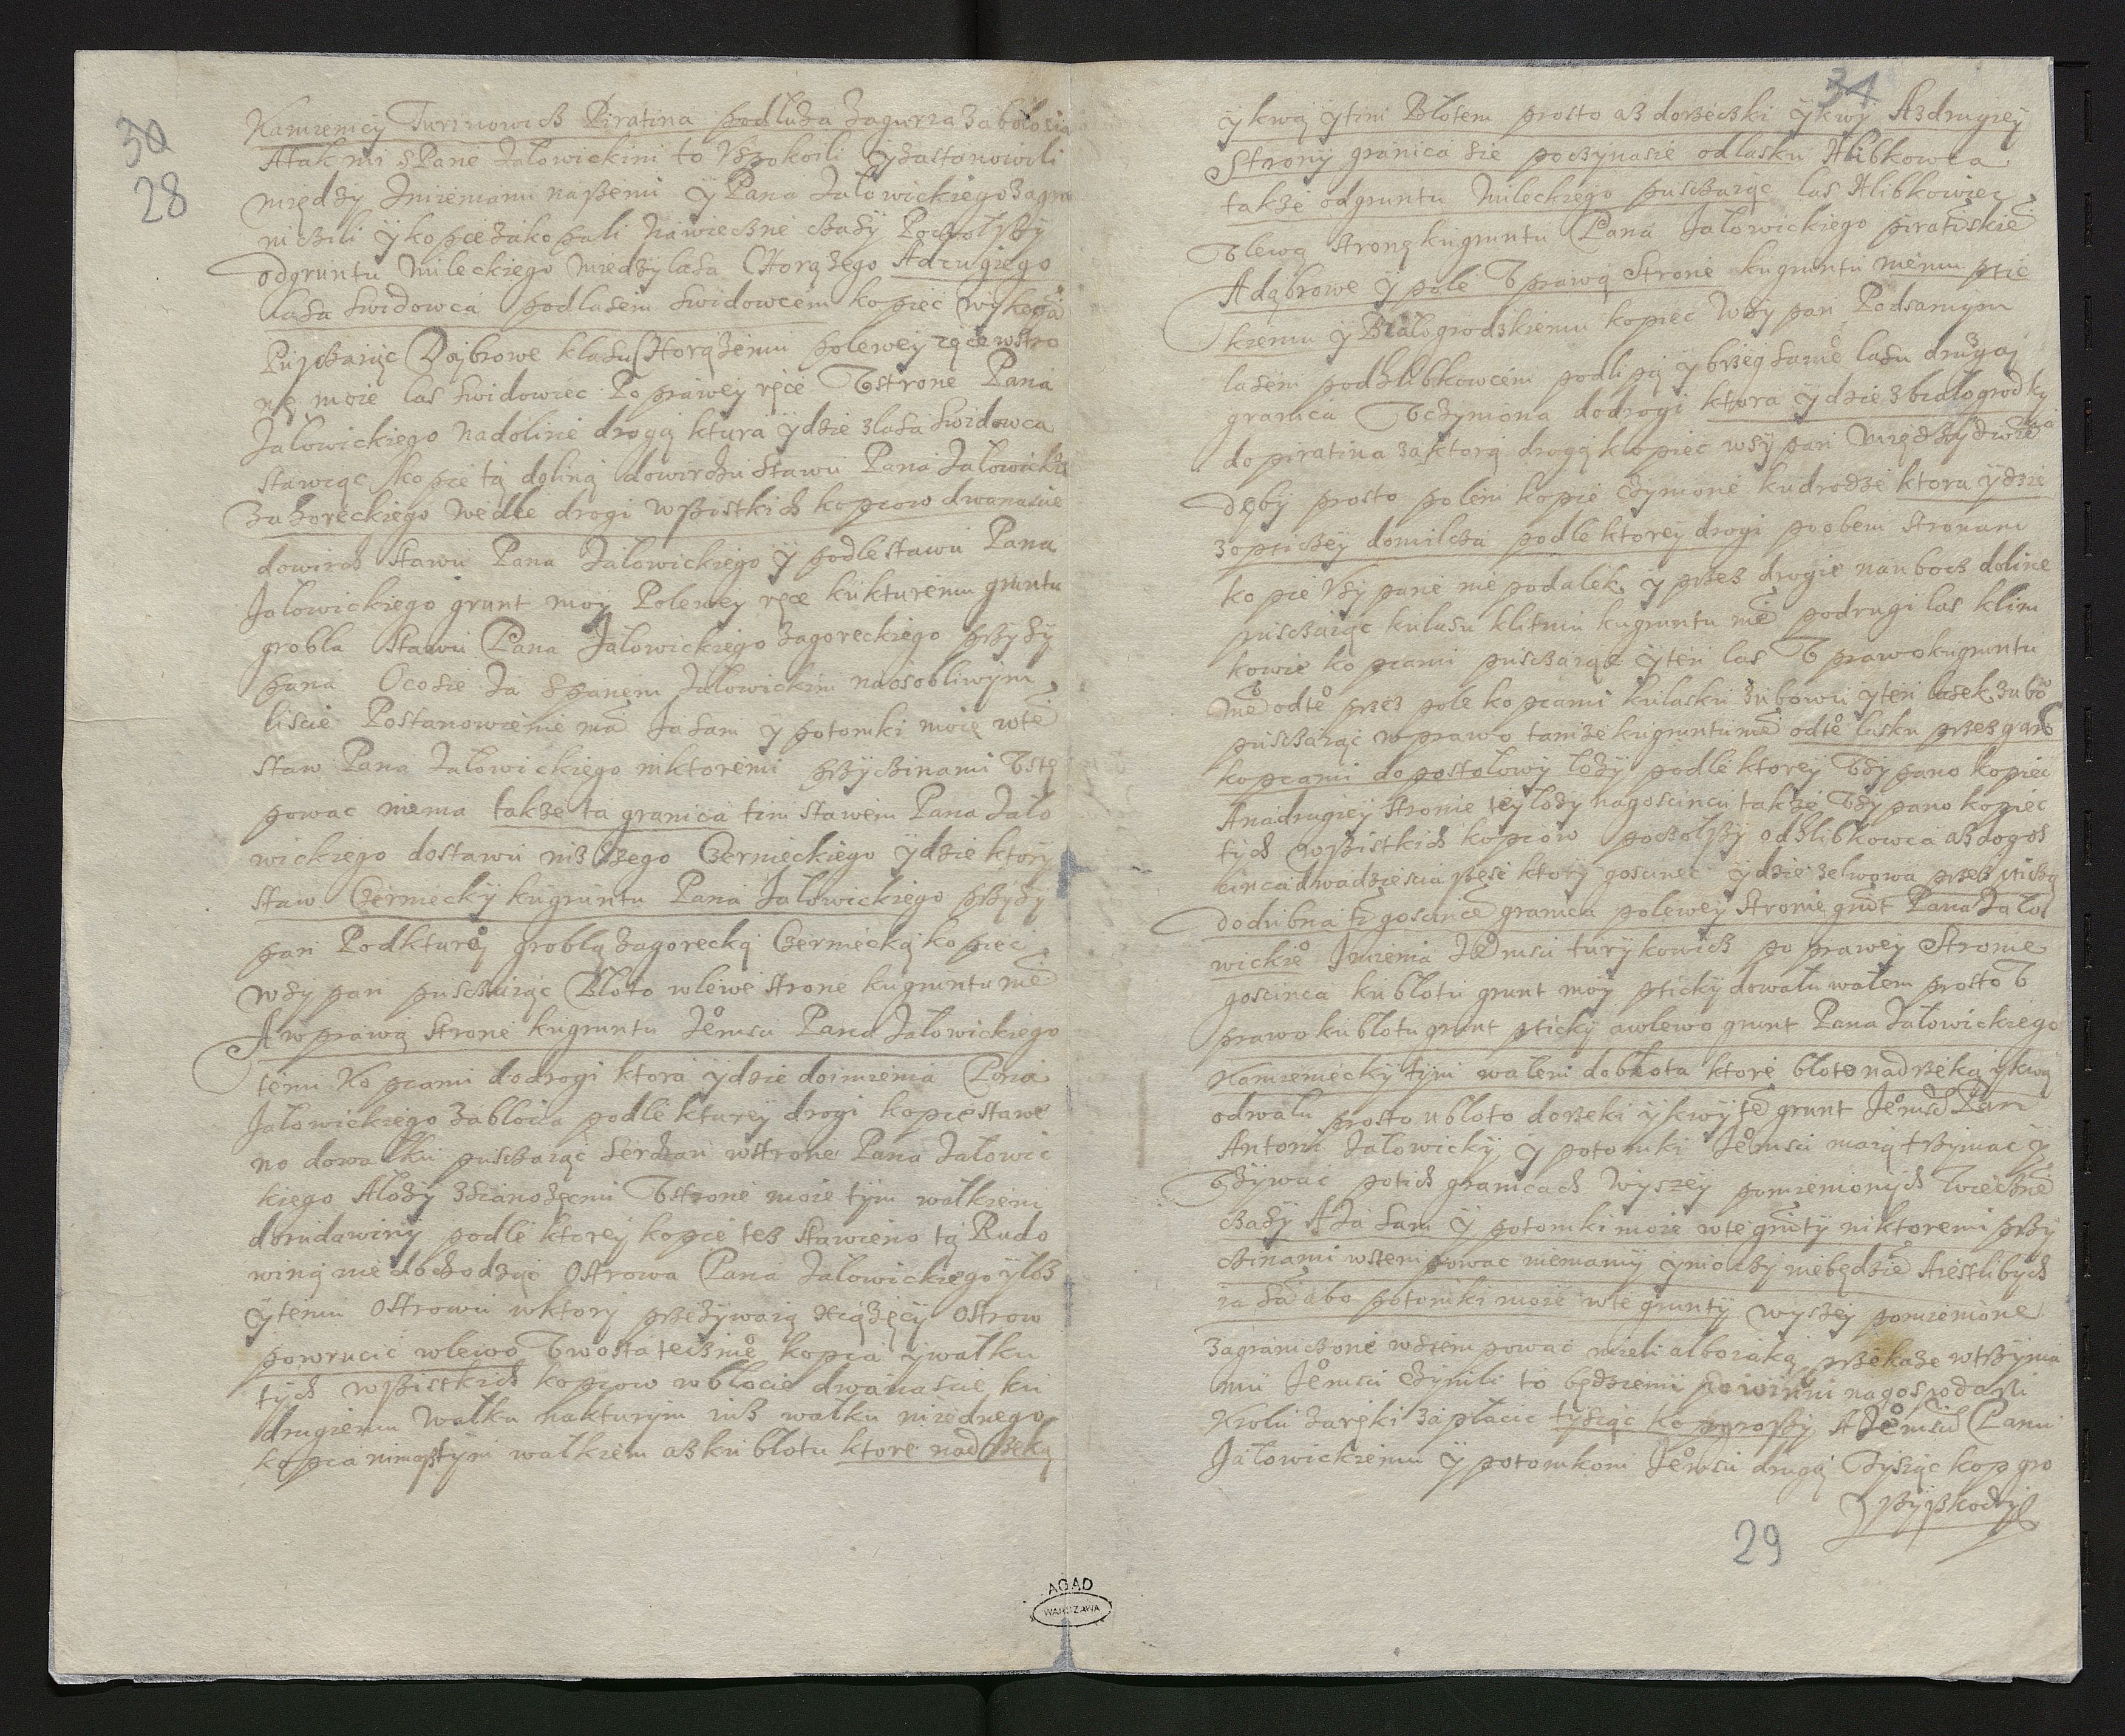 30
28
Kamienicy Turinowich Piratina podluża Zagurza Zabłocia
A tak mi s Pane Jalowickim to Vspokoili y zastanowili
między Imieniami naszemi y Pana Jalowickiego zagra
niczili y kopcie zakopali na wieczne czasy Począłszy
od gruntu Mileckiego między lasa Chorążego A drugiego
lasa Swidowca pod lasem Swidowcem kopiec wykopa
Pusczaiąc Dąbrowe k lasu Chorążemu po lewey ręce w stro
nę moie las Swidowiec Po prawey ręce W strone Pana
Jalowickiego na dolinie drogą ktura ydzie z lasa Swidowca
stawiąc kopcie tą doliną do wirzchu Stawu Pana Jalowickie
Zahoreckiego wedle drogi wszistkich kopcow dwanascie
do wirch Stawu Pana Jalowickiego y podle stawu Pana
Jalowickiego grunt moy Po lewey ręce ku kturemu gruntu
grobla Stawu Pana Jalowickiego Zagoreckiego przysy
pana O co sie Ja s panem Jalowickim na osobliwym
liscie Postanowienie ma Ja sam y potomki moie w te
staw Pana Jalowickiego niktoremi przyczinami Wstę
powac niema także ta granica tim stawem Pana Jalo
wickiego do stawu niższego Czernieckiego ydzie ktory
staw Czerniecky ku gruntu Pana Jalowickiego przysy
pan Pod kturą groblą Zagorecką Czerniecką kopiec
wsypan pusczaiąc Bloto w lewe strone ku gruntu me
A w prawą strone ku gruntu Jemsci Pana Jalowickiego
temi Kopcami do drogi ktora ydzie do imienia Pana
Jalowickiego Zablocia podle kturey drogi kopcie stawe
no do walku pusczaiąc serdzan w strone Pana Jalowic
kiego A lozy z sianożęcmi W strone moie tym walkiem
do rudawiny podle ktorey kopcie tesz stawieno tą Rudo
winą nie dochodząc Ostrowa Pana Jalowickiego
y temu Ostrowu w ktory przezywaią xiążęcy Ostrow
powrucic w lewo W wostatecznie kopca y walku
tych wszistkich kopcow w blocie dwanascie ku
drugiemu walku na kturym iusz walku niiednego
kopca nimasz tym walkiem asz ku blotu ktore nad Rzeką
31
ykwą y tim Blotem prosto asz do rzeczki ykwy A z drugiey
Strony granica sie poczyna sie od lasku Hlibkowca
także od gruntu Mileckiego pusczaiąc las Hlibkowiec
W lewą stronę ku gruntu Pana Jalowickiego piratiskie
A dąbrowe y pole W prawą Strone ku gruntu memu ptic
kiemu y Bialogrodzkiemu kopiec wsypan Pod samym
lasem pod Hlibkowcem pod lipą y brzeg same lasu drugaj
granica Wczyniona do drogi ktora ydzie z bialogrodky
do piratina za ktorą drogą kopiec wsypan między dwie
Dęby prosto polem kopcie czynione ku drodze ktora ydzie
z opticzey do milcza podle ktorey drogi po obem stronam
kopcie Vsypane nie podalek y przez drogie na ubocz doline
pusczaiąc ku lasu klitniu ku gruntu me po drugi las klim
kowie kopcami pusczaiąc y ten las W prawo ku gruntu
me od te przez pole kopcami ku lasku Zubowu y ten lasek Zubo
pusczaiąc w prawo tamże ku gruntu me od te lasku przez
kopcami do postolowy lozy podle ktorey Wsypano kopiec
A na drugiey stronie tey lozy na goscincu takze Wsypano kopiec
tych wszistkich kopcow począłszy od Hlibkowca asz do gos
cinca dwadziescia szesc ktory gosciniec ydzie ze lwowa przez pticzą
do dubna ty goscince granica po lewey stronie grunt Pana Jalo
wickie Imienia Jemsci turykowich po prawey Stronie
goscinca ku blotu grunt moy pticky do walu walem prosto W
prawo ku blotu grunt pticky a w lewo grunt Pana Jalowickiego
Kamieniecky tym walem do blota ktore bloto nad rzeką ykwą
od walu prosto u bloto do rzeki ykwy te grunt Jemsc Pan
Antoni Jalowicky y potomki Jemsci maią trzymac y
Wżywac po tich granicach wyszey pomienionych wieczne
czasy A Ja sam y potomki moie w te grunty niktoremi przy
czinami wstempowac niemamy y niechzy niebędzie A iestlibych
ia sa abo potomki moie w te grunty wyszey pomienione
zagraniczone wstempowac mieli albo iaką przekaze w trzyma
niu Jemsci czynili to będziemy powinni na gospodarsi
Krolu zaręki zaplacic tysiąc kop groszy A Jemsci Panu
Jalowickiemu y potomkom Jemsci drugą Tysiąc kop gro
szy szkody
29
AGAD
WARSZAWA